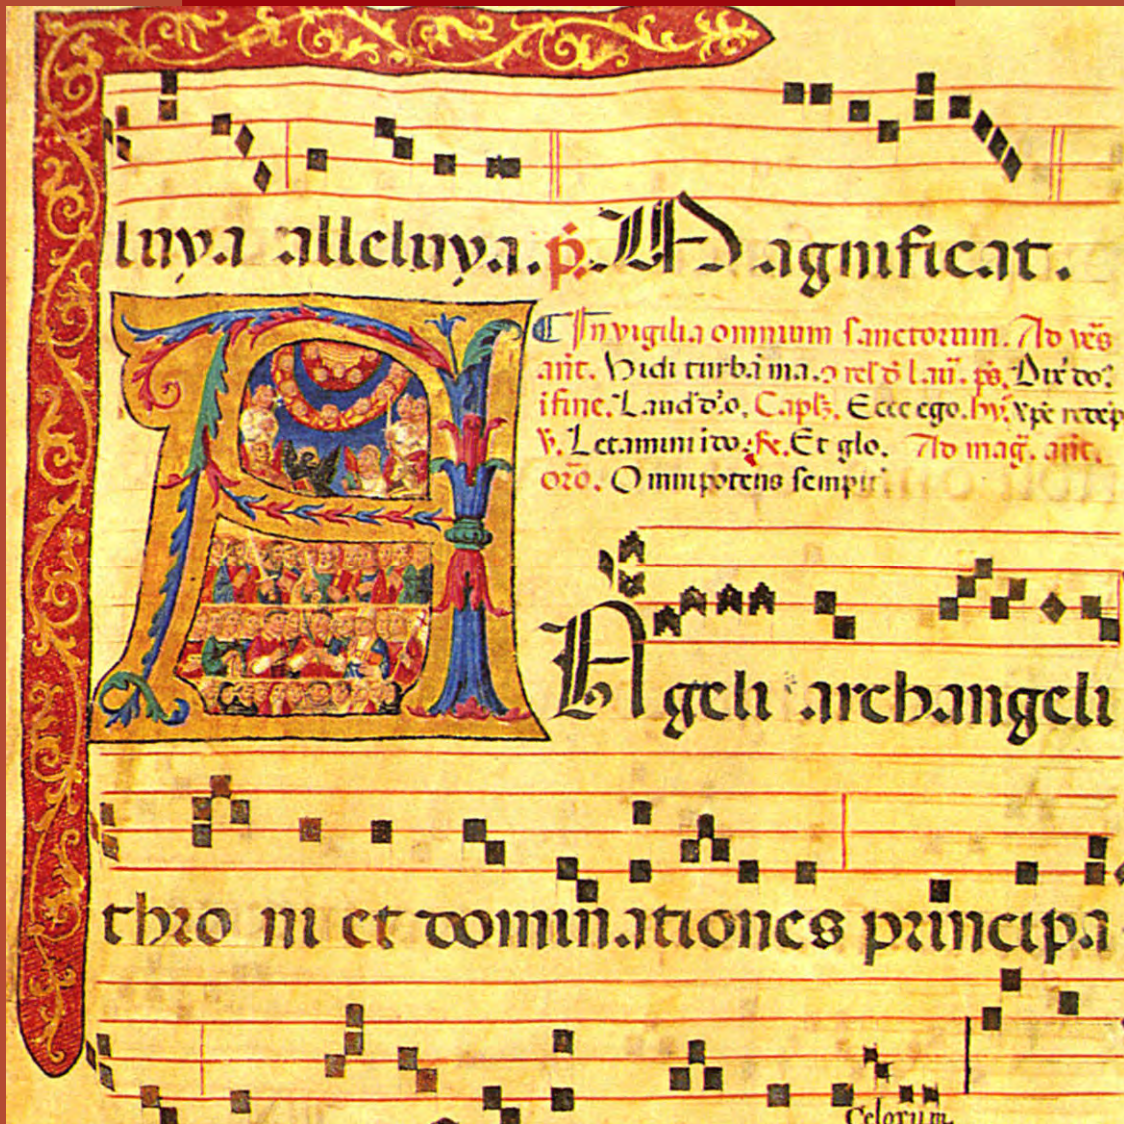 luya alleluya. p̄. Magnificat.
In vigilia omnium sanctorum. Ad vēs
ant. Vidi turbā ma.
ifine. Laud d'o. Capl'. Ecce ego. hy. xpē redēp
v. Letamini i do. R. Et glo. Ad mag̃. ant.
orō. Omnipotens sempit
Ageli archangeli
thro ni et dominationes principa
Celorum